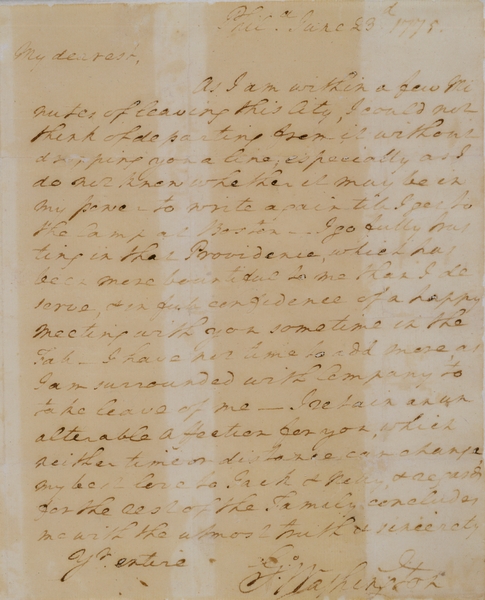 Phil.ᵃ June 23ᵈ 1775.
My dearest,
As I am within a few Mi
nutes of leaving this City, I could not
think of departing from it without
dropping you a line, especially as I
do not know whether it may be in
my power to write again till I get to
the Camp at Boston — I go fully trus
ting in that Providence, which has
been more bountiful to me than I de
serve, & in full confidence of a happy
meeting with you sometime in the
Fall — I have not time to add more, as
I am surrounded with Company to
take leave of me — I retain an un
alterable affection for you, which
neither time or distance can change
my best love to Jack & Nelly, & regard
for the rest of the Family concludes
me with the utmost truth & sincerity
Yʳ entire
Gº Washington